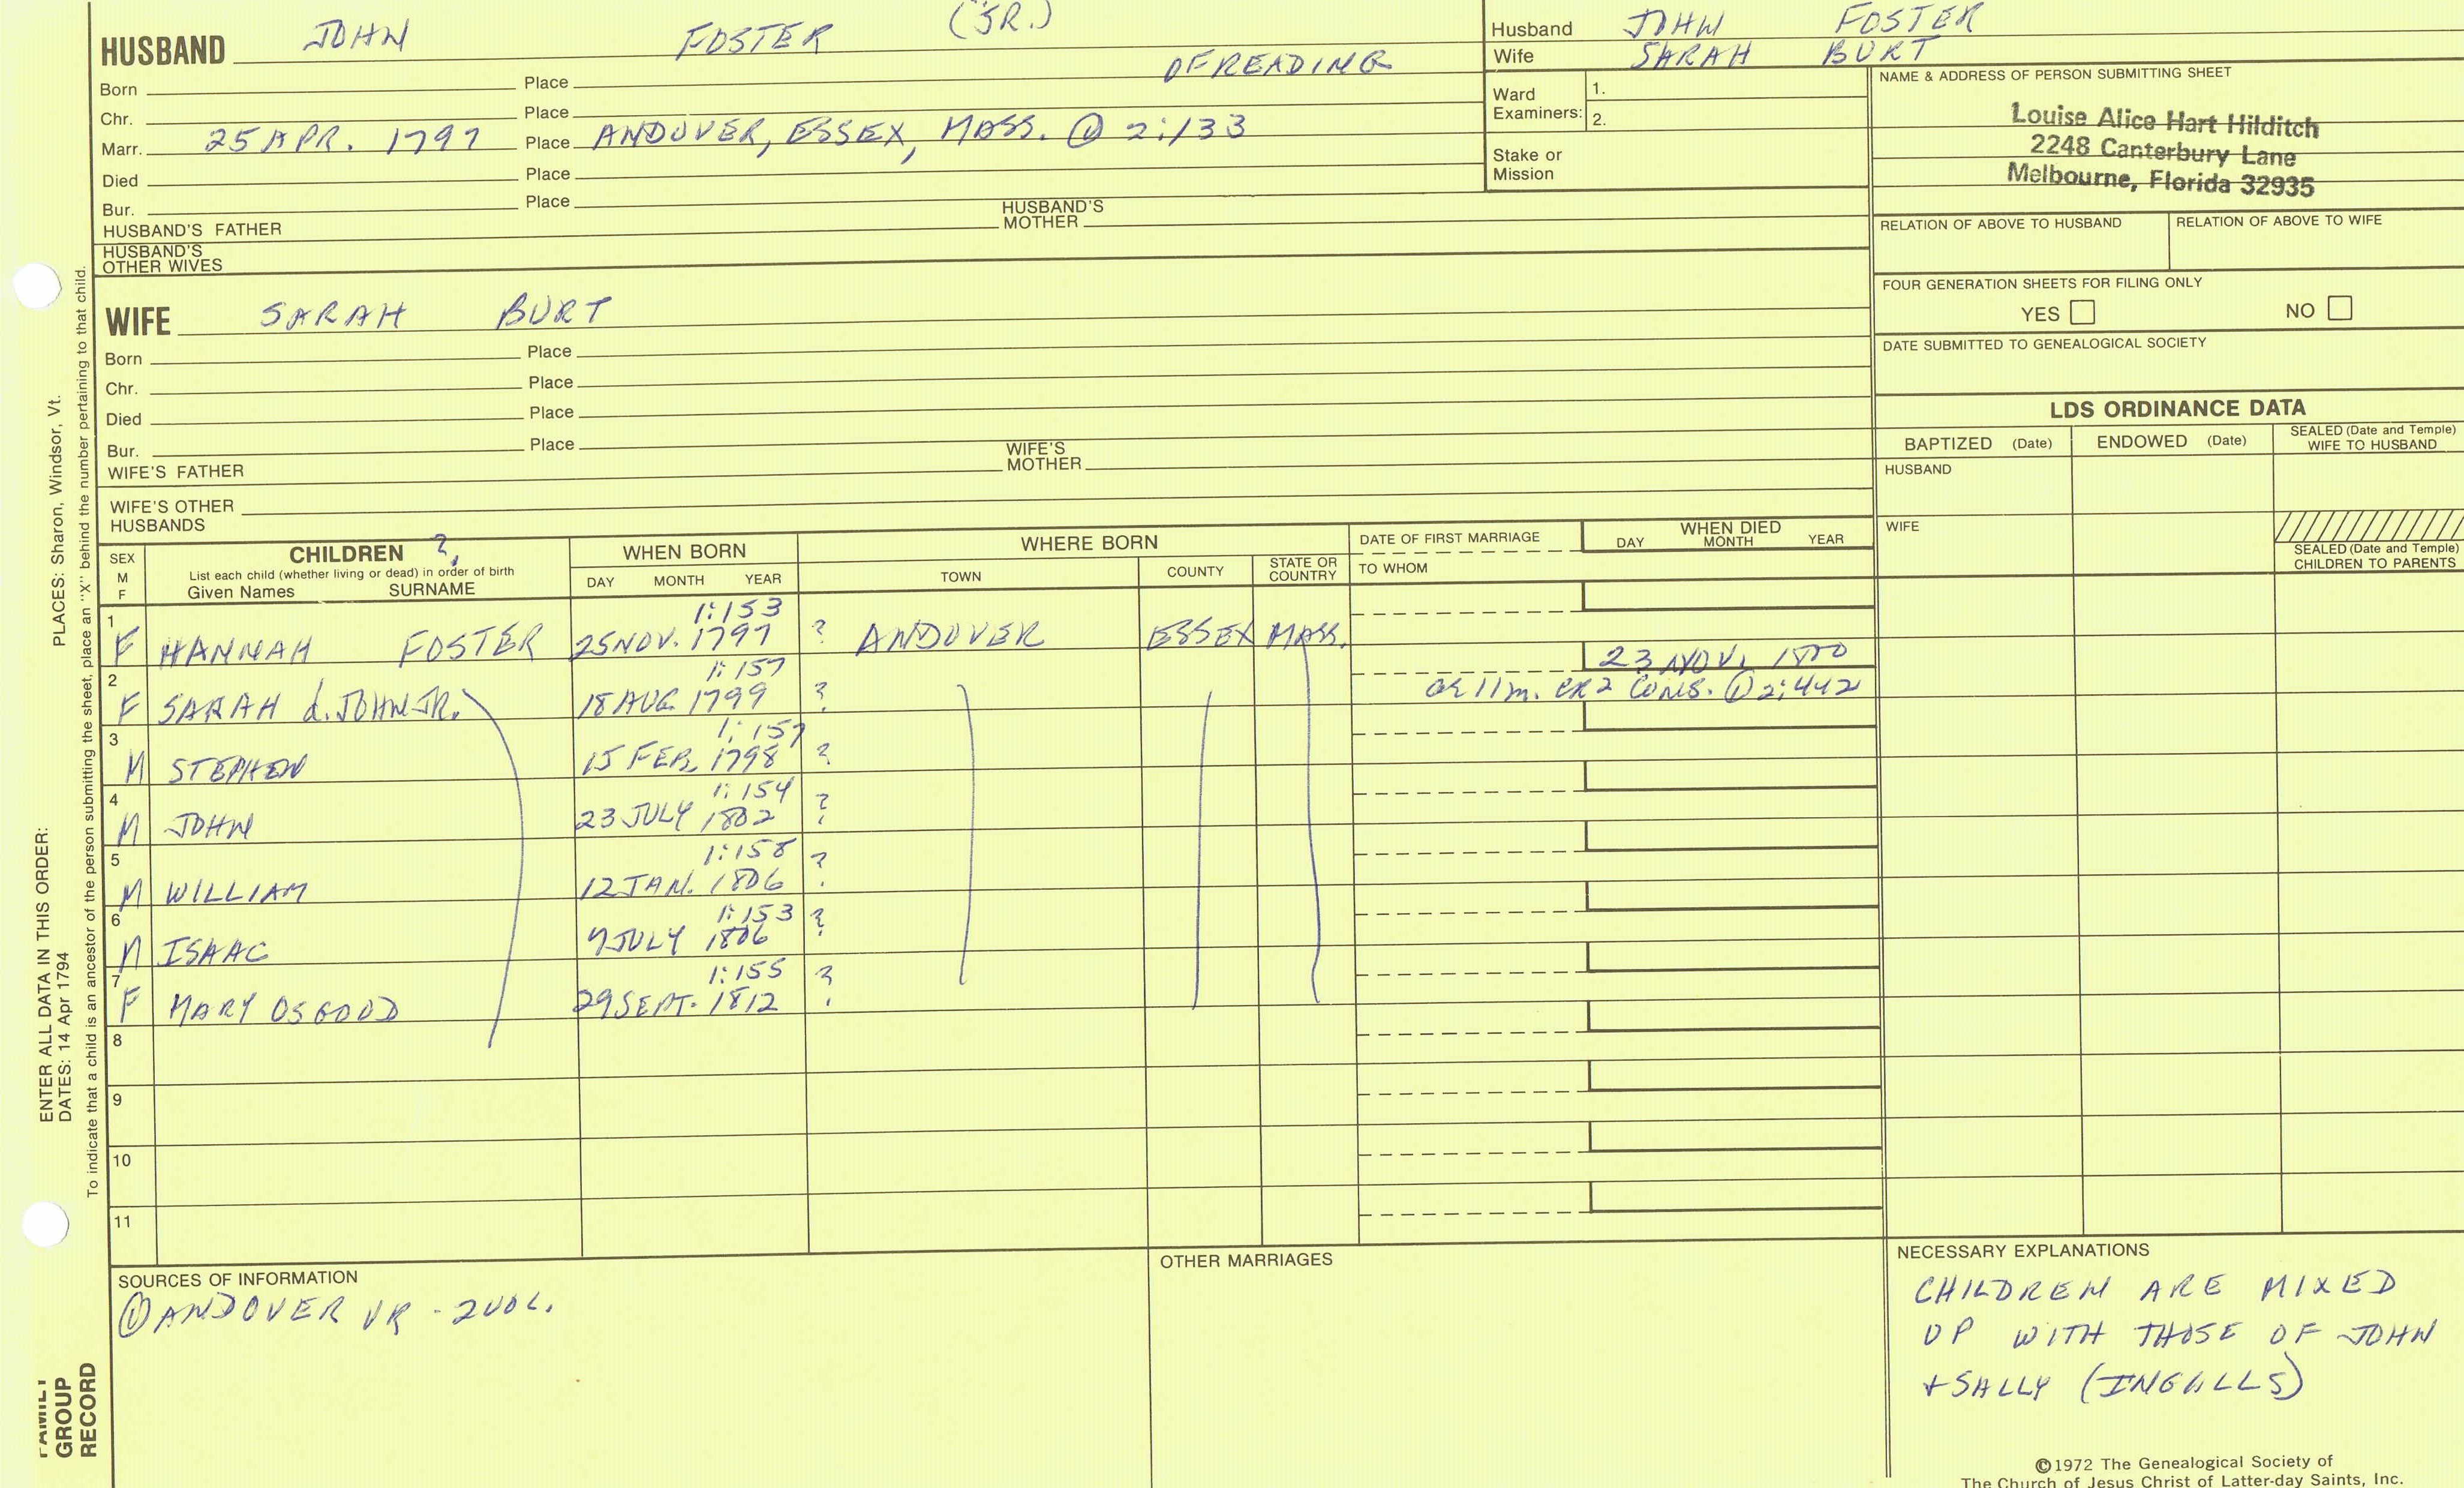 HUSBAND JOHN FOSTER (JR.)
Born Place OF READING
Chr. Place
Marr. 25 APR. 1797 Place ANDOVER, ESSEX, MASS. ① 2:133
Died Place
Bur. Place
HUSBAND'S FATHER HUSBAND'S MOTHER
HUSBAND'S OTHER WIVES
Husband JOHN FOSTER
Wife SARAH BURT
Ward Examiners: 1.
2.
Stake or Mission
NAME & ADDRESS OF PERSON SUBMITTING SHEET
Louise Alice Hart Hilditch
2248 Canterbury Lane
Melbourne, Florida 32935
RELATION OF ABOVE TO HUSBAND RELATION OF ABOVE TO WIFE
FOUR GENERATION SHEETS FOR FILING ONLY
YES NO
DATE SUBMITTED TO GENEALOGICAL SOCIETY
WIFE SARAH BURT
Born Place
Chr. Place
Died Place
Bur. Place
WIFE'S FATHER WIFE'S MOTHER
WIFE'S OTHER HUSBANDS
LDS ORDINANCE DATA
BAPTIZED (Date) ENDOWED (Date) SEALED (Date and Temple) WIFE TO HUSBAND
HUSBAND
WIFE
SEALED (Date and Temple) CHILDREN TO PARENTS
SEX M F CHILDREN ? List each child (whether living or dead) in order of birth Given Names SURNAME
WHEN BORN DAY MONTH YEAR
WHERE BORN TOWN COUNTY STATE OR COUNTRY
DATE OF FIRST MARRIAGE TO WHOM
WHEN DIED DAY MONTH YEAR
1:153
1 F HANNAH FOSTER 25 NOV. 1797 ? ANDOVER ESSEX MASS.
1:157 23 NOV. 1800
2 F SARAH d. JOHN JR. 18 AUG 1799 ? CR2 CONS. ① 2:442
1:157
3 M STEPHEN 15 FEB. 1798 ?
1:154
4 M JOHN 23 JULY 1802 ?
1:158
5 M WILLIAM 12 JAN. 1806 ?
1:153
6 M ISAAC 7 JULY 1806 ?
1:155
7 F MARY OSGOOD 29 SEPT. 1812 ?
8
9
10
11
SOURCES OF INFORMATION
① ANDOVER VR - 2 VOL.
OTHER MARRIAGES
NECESSARY EXPLANATIONS
CHILDREN ARE MIXED
UP WITH THOSE OF JOHN
+ SALLY (INGALLS)
©1972 The Genealogical Society of
The Church of Jesus Christ of Latter-day Saints, Inc.
ENTER ALL DATA IN THIS ORDER:
DATES: 14 Apr 1794 PLACES: Sharon, Windsor, Vt.
To indicate that a child is an ancestor of the person submitting the sheet, place an "X" behind the number pertaining to that child.
FAMILY
GROUP
RECORD